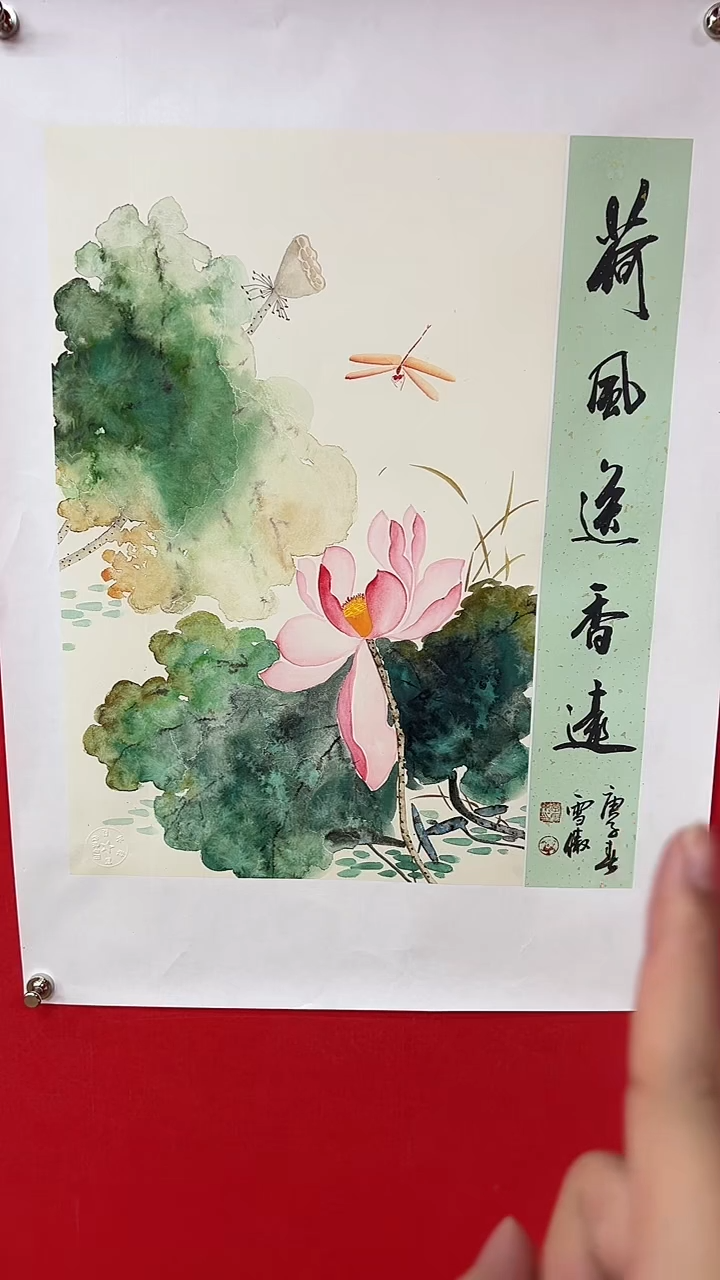 荷風送香遠
庚子春
雪傲